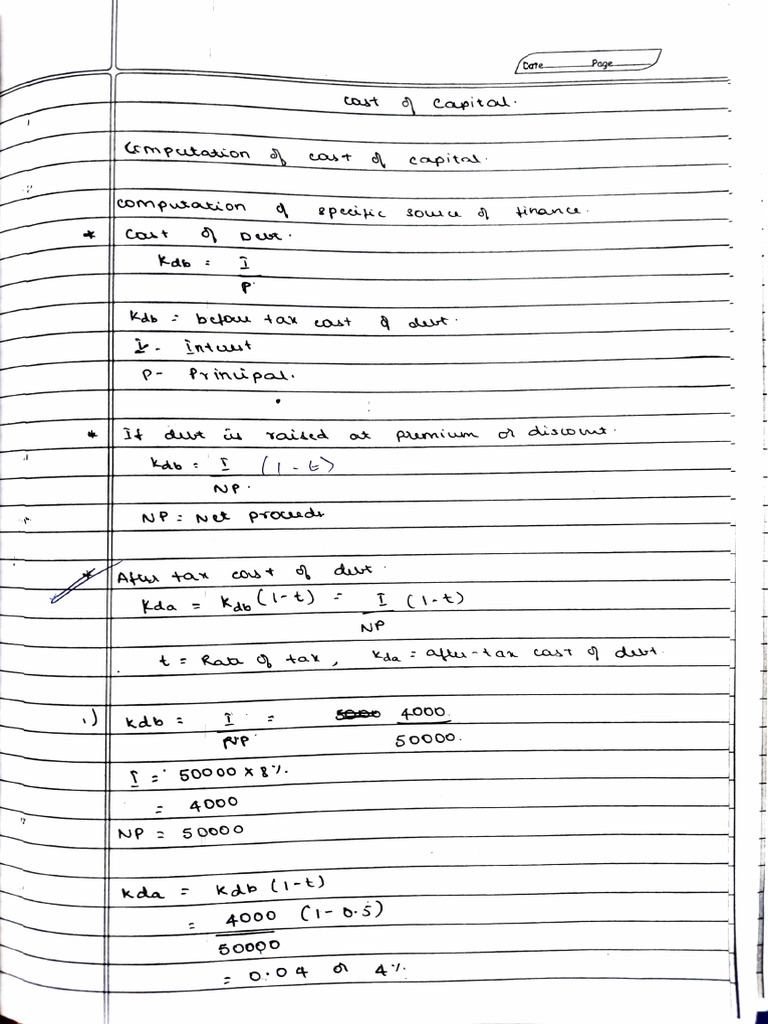 Date Page
Cost of Capital.
Computation of cost of capital.
Computation of specific source of finance.
* Cost of Debt.
Kdb = I
P.
Kdb = before tax cost of debt.
I - Interest
P - Principal.
* If debt is raised at premium or discount.
Kdb = I (1-t)
NP.
NP = Net proceeds
* After tax cost of debt.
Kda = Kdb (1-t) = I (1-t)
NP
t = Rate of tax, Kda = after-tax cost of debt.
1) Kdb = I = 5000 4000
NP 50000.
I = 50000 x 8%.
= 4000
NP = 50000
Kda = Kdb (1-t)
= 4000 (1-0.5)
50000
= 0.04 or 4%.